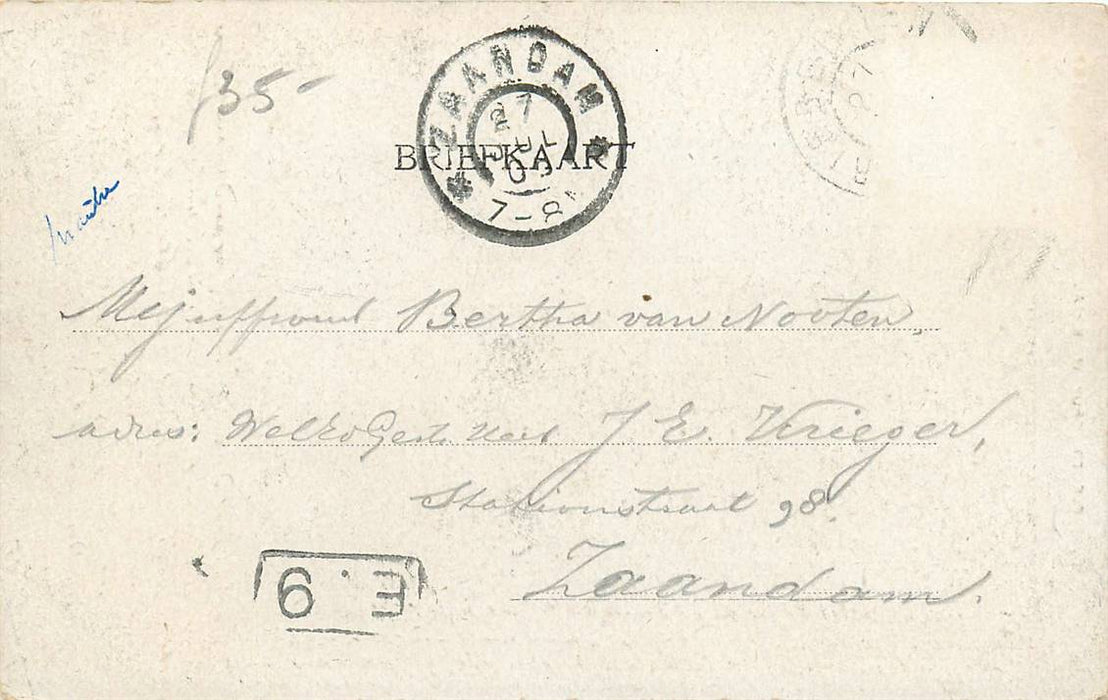 ƒ35-
ZAANDAM
27
JUL
7-8
BRIEFKAART
Mejuffrouw Bertha van Nooten,
adres: J. E. Krieger,
Stationstraat 98.
Zaandam.